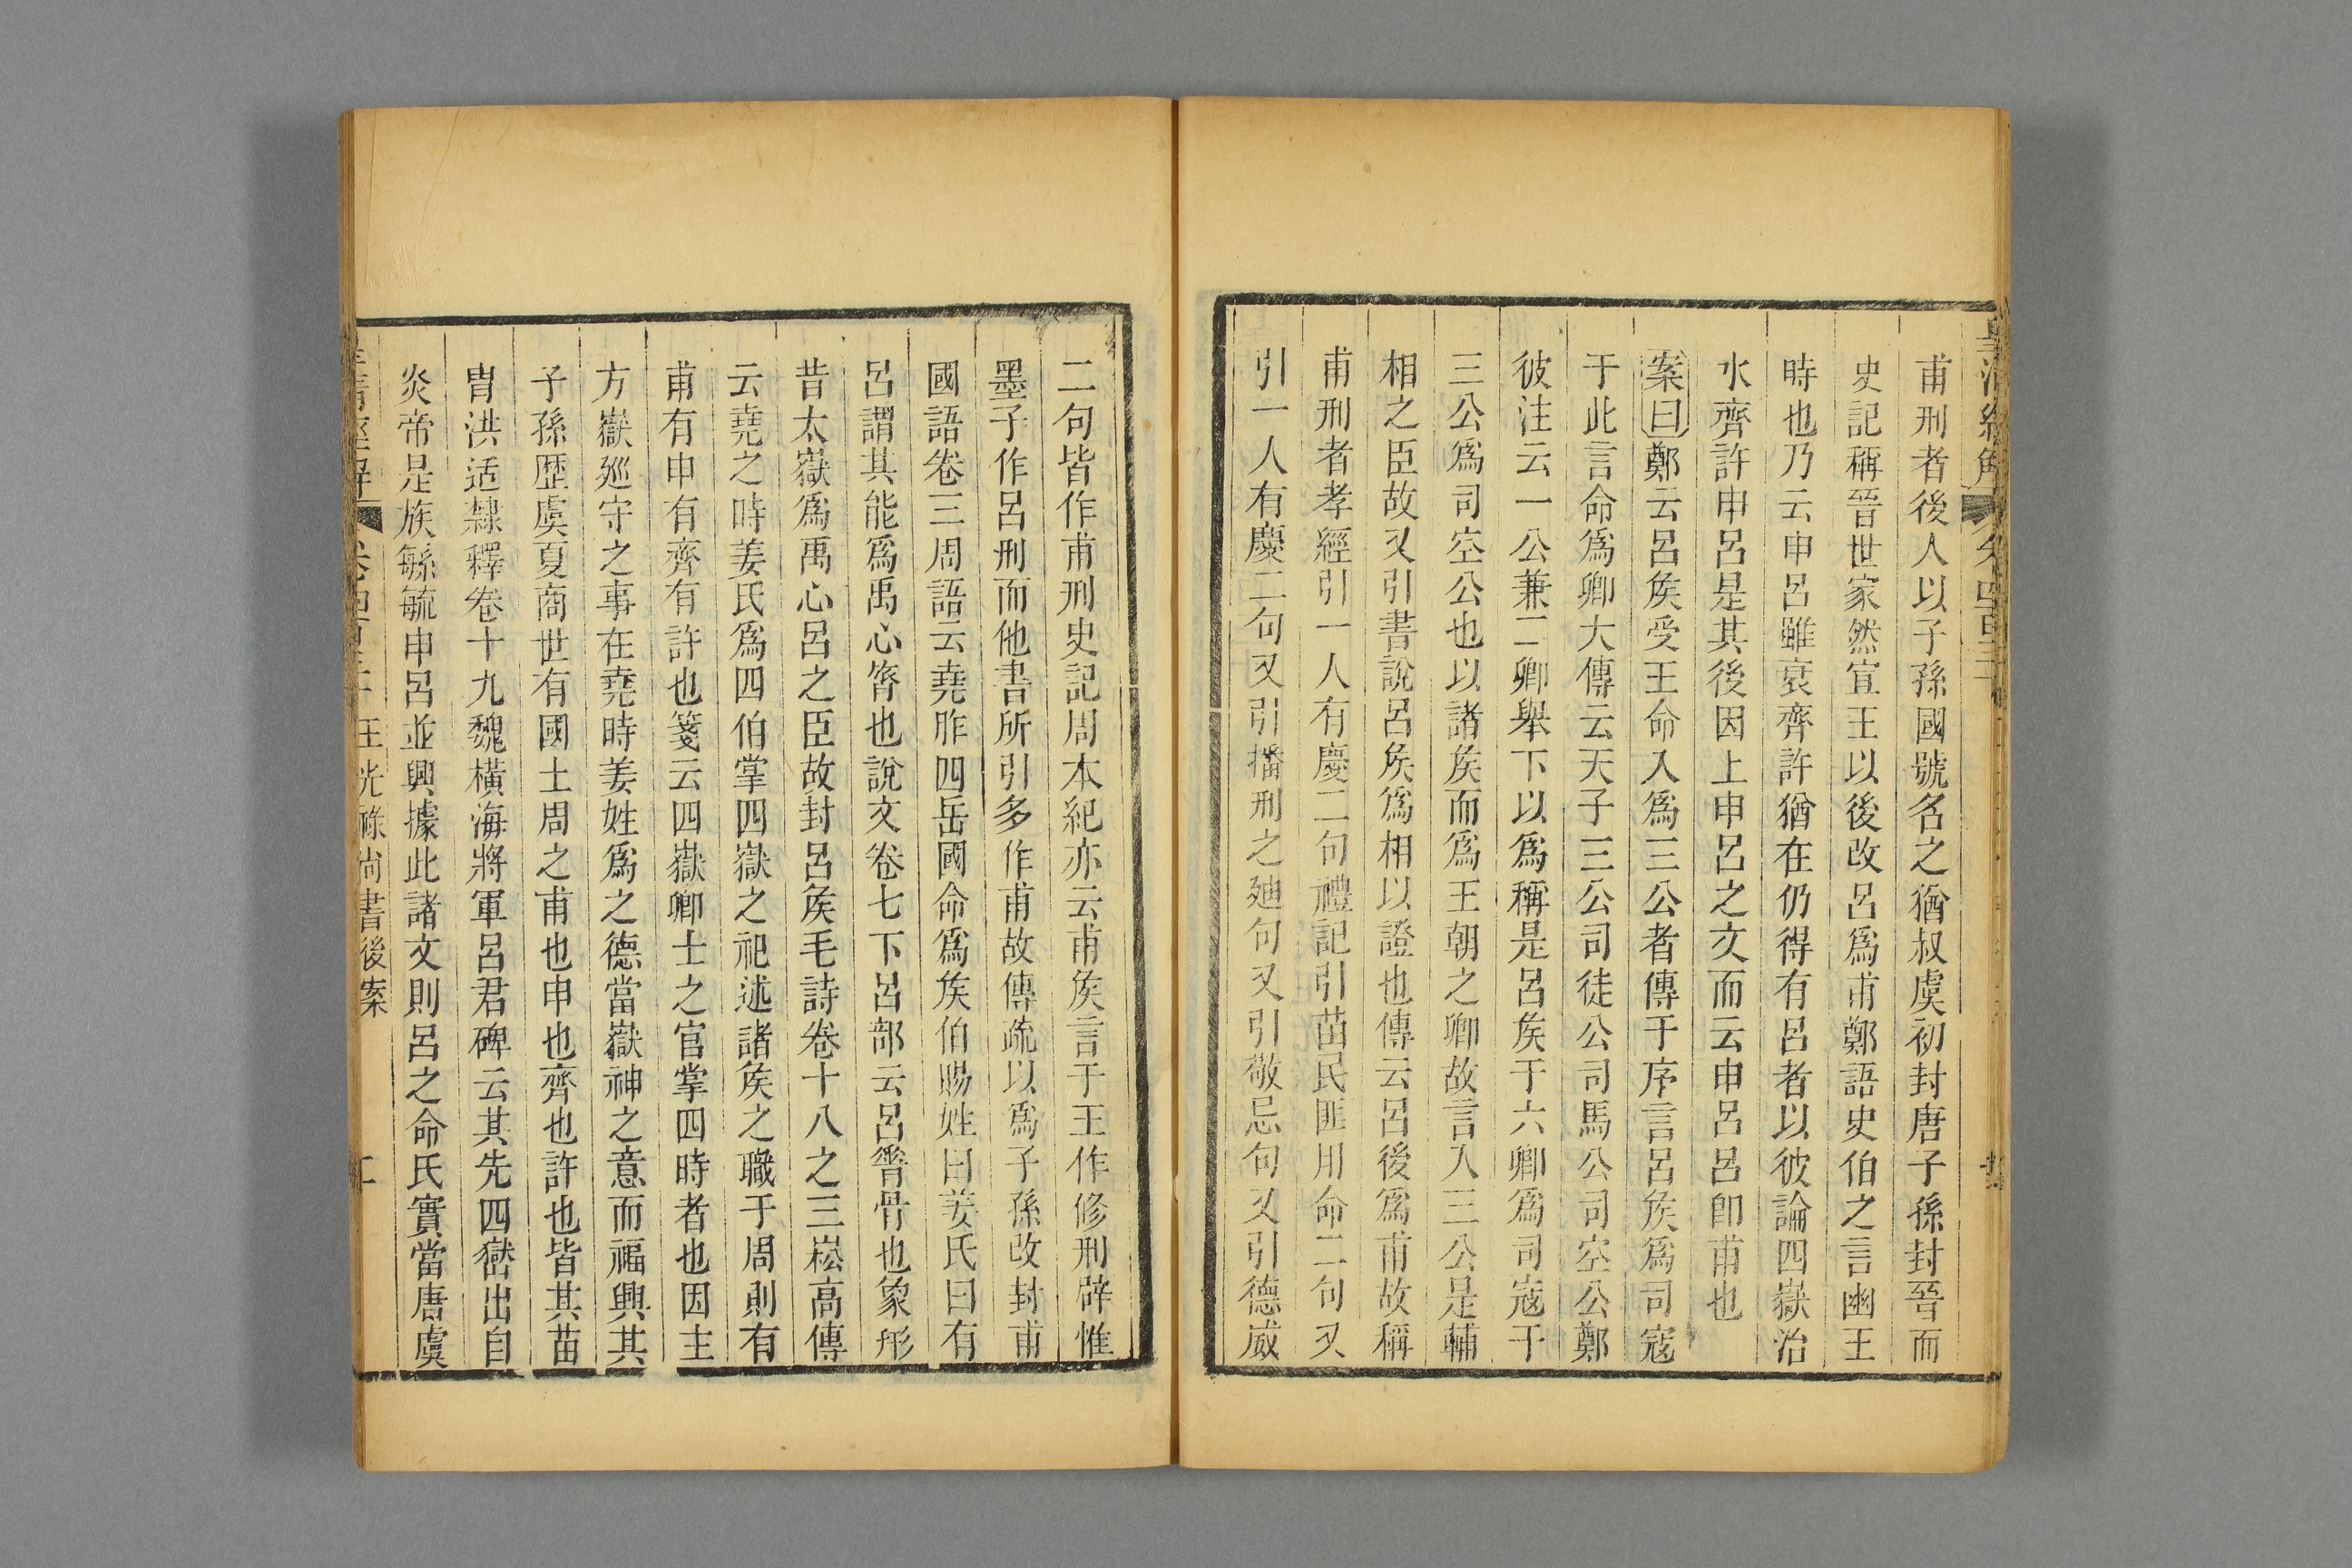 皇清經解 卷四百三十
甫刑者後人以子孫國號名之猶叔虞初封唐子孫封晉而
史記稱晉世家然宣王以後改呂爲甫鄭語史伯之言幽王
時也乃云申呂雖衰齊許猶在仍得有呂者以彼論四嶽治
水齊許申呂是其後因上申呂之文而云申呂呂卽甫也
案曰鄭云呂矦受王命入爲三公者傳于序言呂矦爲司寇
于此言命爲卿大傳云天子三公司徒公司馬公司空公鄭
彼注云一公兼二卿舉下以爲稱是呂矦于六卿爲司寇于
三公爲司空公也以諸矦而爲王朝之卿故言入三公是輔
相之臣故又引書說呂矦爲相以證也傳云呂後爲甫故稱
甫刑者孝經引一人有慶二句禮記引苗民匪用命二句又
引一人有慶二句又引播刑之廸句又引敬忌句又引德威
二句皆作甫刑史記周本紀亦云甫矦言于王作修刑辟惟
墨子作呂刑而他書所引多作甫故傳疏以爲子孫改封甫
國語卷三周語云堯胙四岳國命爲矦伯賜姓曰姜氏曰有
呂謂其能爲禹心膂也說文卷七下呂部云呂膂骨也象形
昔太嶽爲禹心呂之臣故封呂矦毛詩卷十八之三崧高傳
云堯之時姜氏爲四伯掌四嶽之祀述諸矦之職于周則有
甫有申有齊有許也箋云四嶽卿士之官掌四時者也因主
方嶽廵守之事在堯時姜姓爲之德當嶽神之意而福興其
子孫歴虞夏商世有國土周之甫也申也齊也許也皆其苗
胄洪适隸釋卷十九魏橫海將軍呂君碑云其先四嶽出自
炎帝是族緐毓申呂並興據此諸文則呂之命氏實當唐虞
皇清經解 卷四百三十 王光祿尚書後案